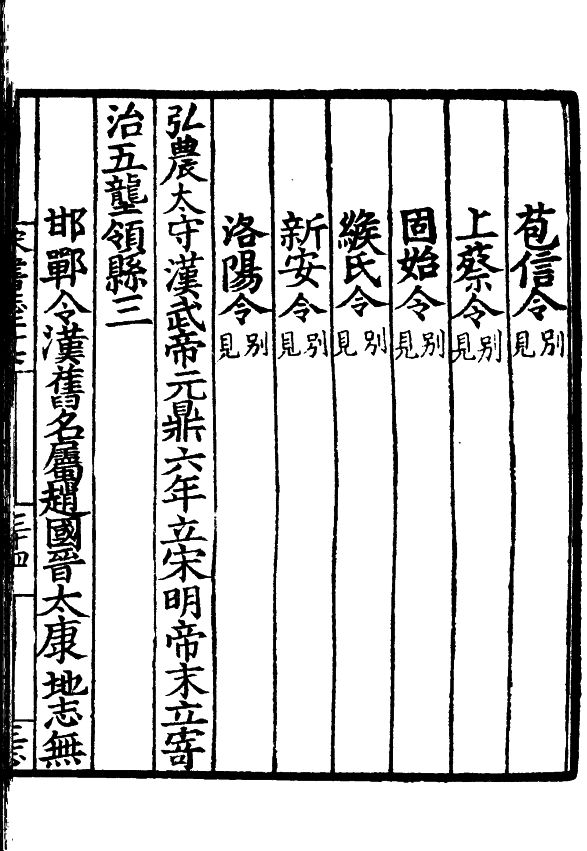 苞信令別見
上蔡令別見
固始令別見
緱氏令別見
新安令別見
洛陽令別見
弘農太守漢武帝元鼎六年立宋明帝末立寄
治五壟領縣三
邯鄲令漢舊名屬趙國晉太康地志無